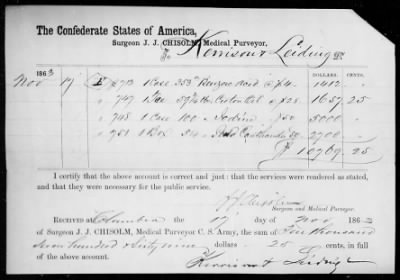 The Confederate States of America,
Surgeon J. J. CHISOLM, Medical Purveyor,
To Kerrison & Leiding Dr.
1863 DOLLARS. CENTS.
Nov 17 1 Case 353 Benzoic Acid @ $4. 1412
" 747 1 Case Croton Oil @ $25 1657.25
" 748 1 Case 100 " Iodine " $50 5000
" 751 1 Box 2700
$ 10769.25
I certify that the above account is correct and just; that the services were rendered as stated,
and that they were necessary for the public service.
J J Chisolm
Surgeon and Medical Purveyor.
RECEIVED AT Columbia the 17 day of Nov 1863
of Surgeon J. J. CHISOLM, Medical Purveyor C. S. Army, the sum of Ten thousand
seven hundred & Sixty nine dollars 25 cents, in full
of the above account.
Kerrison & Leiding